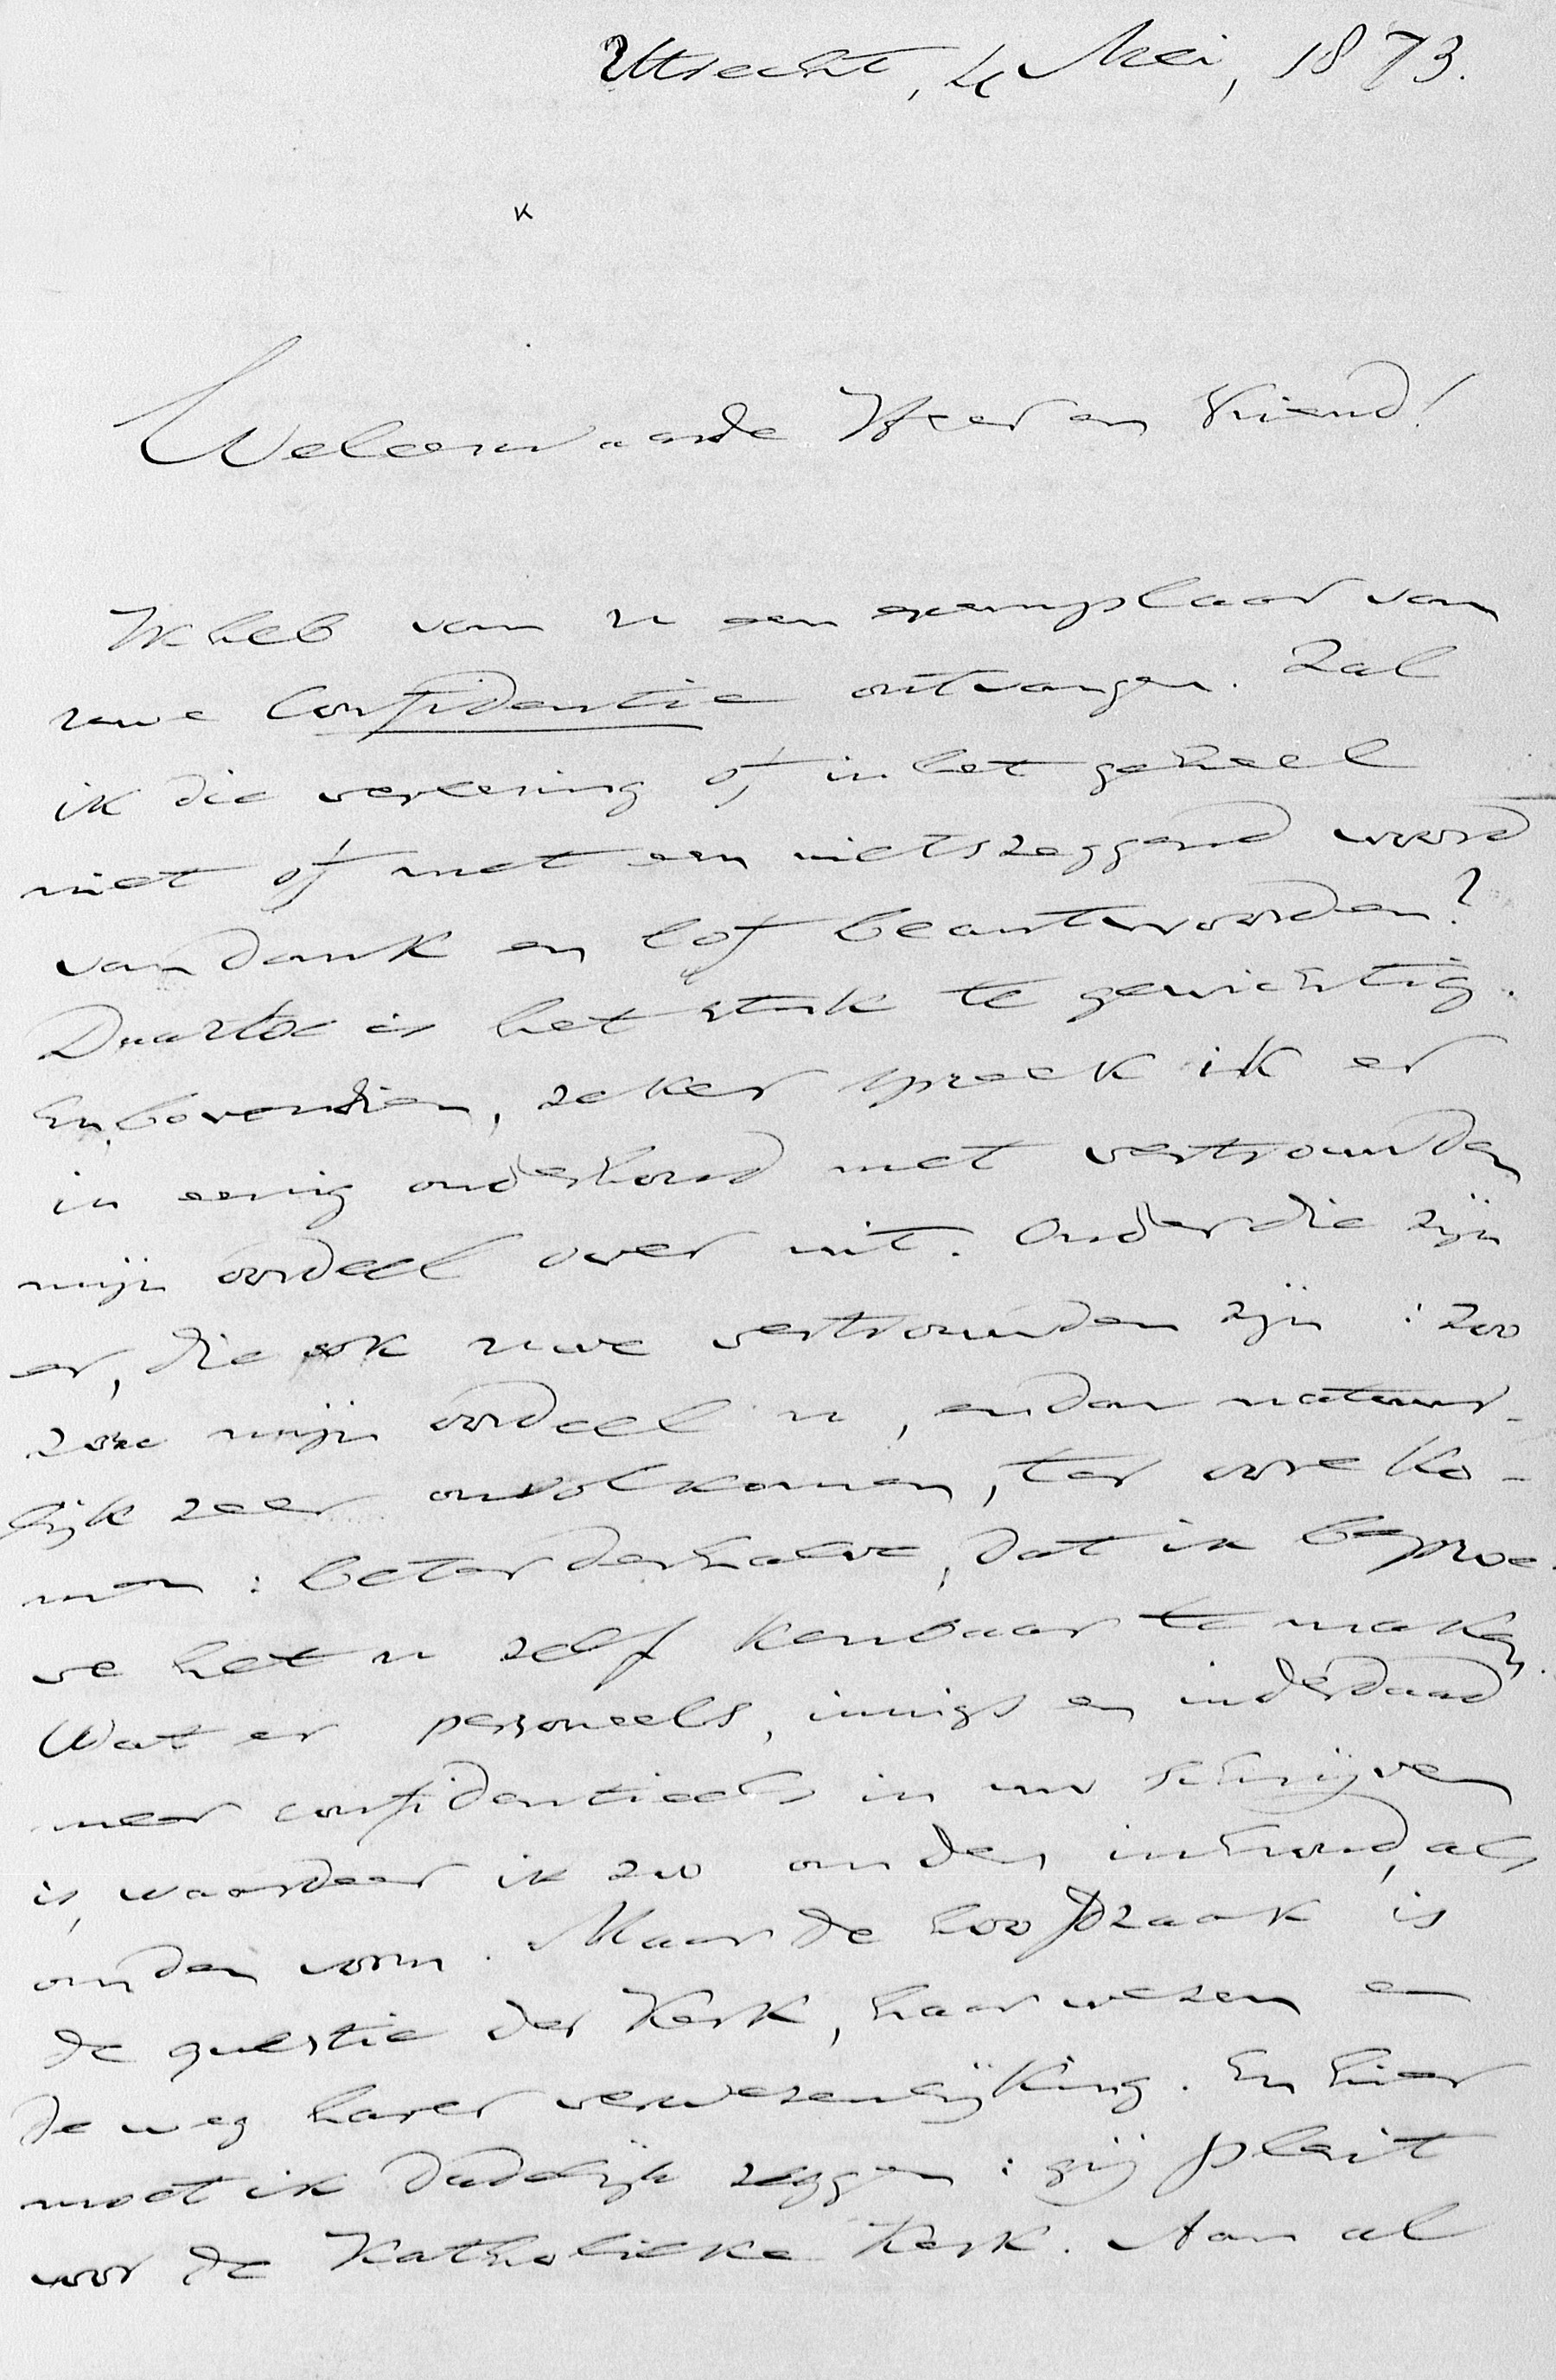 Utrecht, 4 Mei, 1873.
Weleerwaarde Heer en Vriend!
Ik heb van u een exemplaar van
uwe Confidentie ontvangen. Zal
ik die vereering of in het geheel
niet of met een nietszeggend woord
van dank en lof beantwoorden?
Daartoe is het stuk te gewichtig.
En, bovendien, zeker spreek ik er
in eenig onderhoud met vertrouwden
mijn oordeel over uit. Onder die zijn
er, die ook uwe vertrouwden zijn: zoo
zou mijn oordeel u, en dan natuur-
lijk zeer onvolkomen, ter oore ko-
men: beter derhalve, dat ik beproe-
ve het u zelf kenbaar te maken.
Wat er personeels, innigs en inderdaad
neer confidentieels in uw schrijven
is, waardeer ik zoo om den inhoud, als
om den vorm. Maar de hoofdzaak is
de questie der Kerk, haar wezen en
de weg harer verwezenlijking. En hier
moet ik dadelijk zeggen: gij pleit
voor de Katholieke Kerk. Aan al